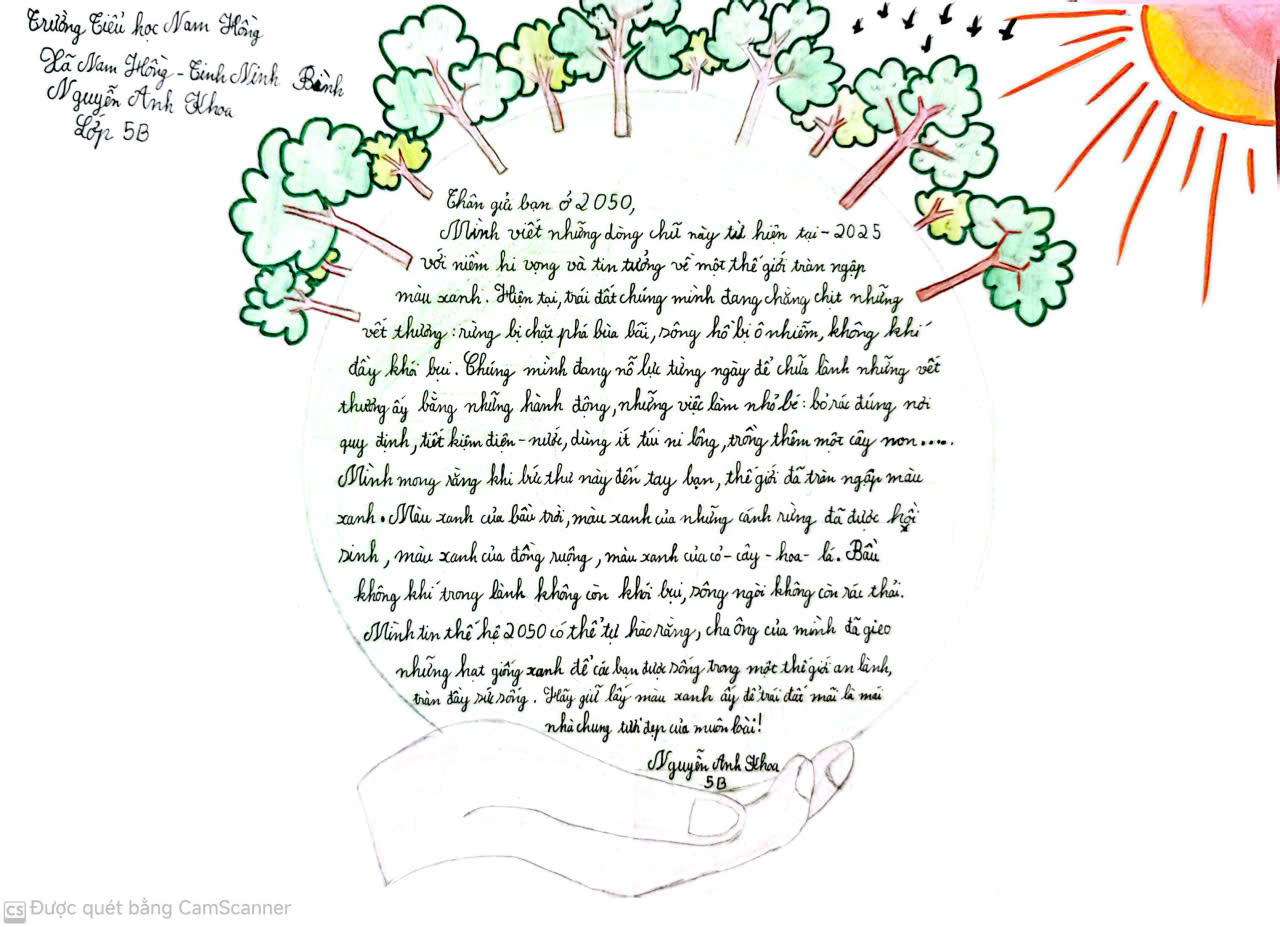 Trường Tiểu học Nam Hồng
Xã Nam Hồng - Tỉnh Ninh Bình
Nguyễn Anh Khoa
Lớp 5B
Thân gửi bạn ở 2050,
Mình viết những dòng chữ này từ hiện tại - 2025
với niềm hi vọng và tin tưởng về một thế giới tràn ngập
màu xanh. Hiện tại, trái đất chúng mình đang chằng chịt những
vết thương: rừng bị chặt phá bừa bãi, sông hồ bị ô nhiễm, không khí
đầy khói bụi. Chúng mình đang nỗ lực từng ngày để chữa lành những vết
thương ấy bằng những hành động, những việc làm nhỏ bé: bỏ rác đúng nơi
quy định, tiết kiệm điện - nước, dùng ít túi ni lông, trồng thêm một cây non.....
Mình mong rằng khi bức thư này đến tay bạn, thế giới đã tràn ngập màu
xanh. Màu xanh của bầu trời, màu xanh của những cánh rừng đã được hồi
sinh, màu xanh của đồng ruộng, màu xanh của cỏ - cây - hoa - lá. Bầu
không khí trong lành không còn khói bụi, sông ngòi không còn rác thải.
Mình tin thế hệ 2050 có thể tự hào rằng, cha ông của mình đã gieo
những hạt giống xanh để các bạn được sống trong một thế giới an lành,
tràn đầy sức sống. Hãy giữ lấy màu xanh ấy để trái đất mãi là mái
nhà chung tươi đẹp của muôn loài!
Nguyễn Anh Khoa
5B
CS Được quét bằng CamScanner